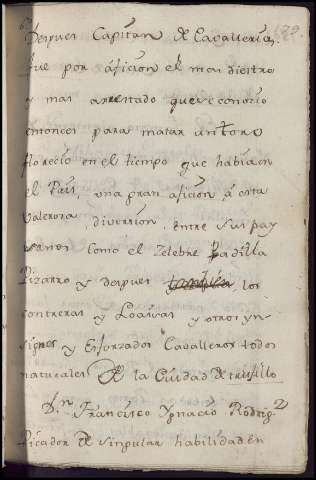 despues Capitan de Cavalleria,
fue por aficion el mas diestro
y mas arrestado que se conocio
entonces para matar un toro
florecio en el tiempo que habia en
el Pais, una gran aficion á esta
Valerosa diversion, entre sus pay
sanos como el Zelebre Padilla
Pizarro y despues también los
Contreras y Loaisas y otros yn
signes y Esforzados Cavalleros todos
naturales de la Ciudad de trusillo
Dn. Francisco Ygnacio Rodrig.
Picador de singular habilidad en